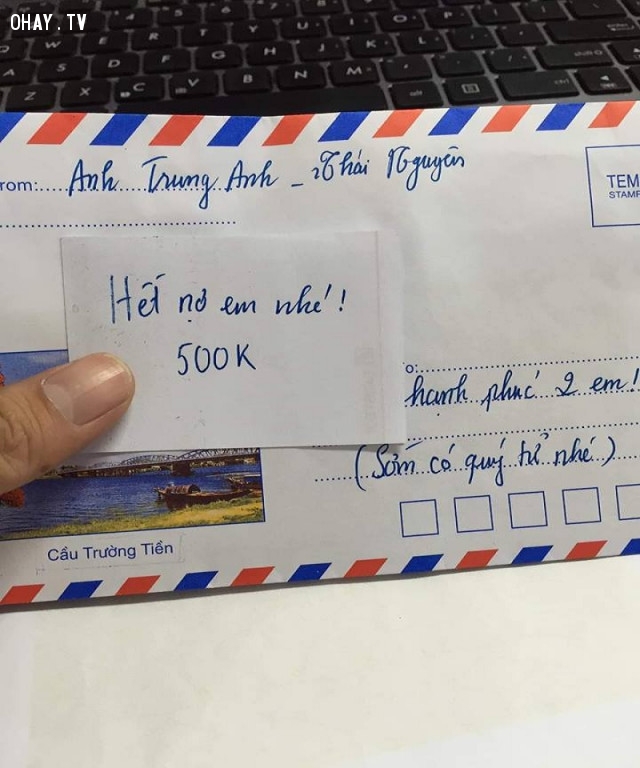 OHAY.TV
from: Anh Trung Anh - Thái Nguyên
TEM
STAMP
Hết nợ em nhé!
500K
o:
hạnh phúc 2 em!
(Sớm có quý tử nhé)
Cầu Trường Tiền